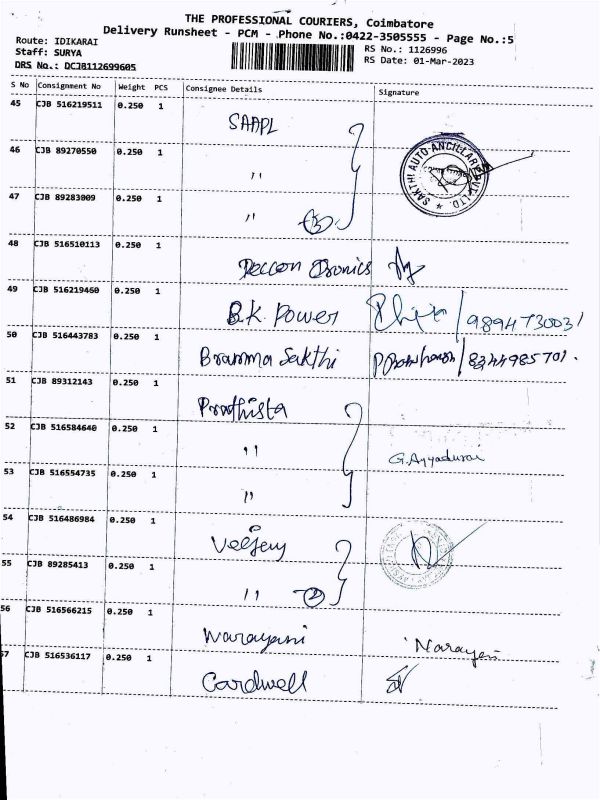 THE PROFESSIONAL COURIERS, Coimbatore
Delivery Runsheet - PCM - Phone No.:0422-3505555 - Page No.:5
Route: IDIKARAI
Staff: SURYA
DRS No.: DCJB112699605
RS No.: 1126996
RS Date: 01-Mar-2023
S No Consignment No Weight PCS Consignee Details Signature
45 CJB 516219511 0.250 1 SAAPL
46 CJB 89270550 0.250 1 "
SAKTHI AUTO ANCILLARY PVT. LTD.
47 CJB 89283009 0.250 1 " (3)
48 CJB 516510113 0.250 1
49 CJB 516219460 0.250 1 B.K. Power / 9894730031
50 CJB 516443783 0.250 1 Bramma Sakthi / 8344985701.
51 CJB 89312143 0.250 1 Prathista
52 CJB 516584640 0.250 1 " G. Ayyadurai
53 CJB 516554735 0.250 1 "
54 CJB 516486984 0.250 1
55 CJB 89285413 0.250 1 " (2)
56 CJB 516566215 0.250 1 Narayani Narayani
57 CJB 516536117 0.250 1 Cardwell